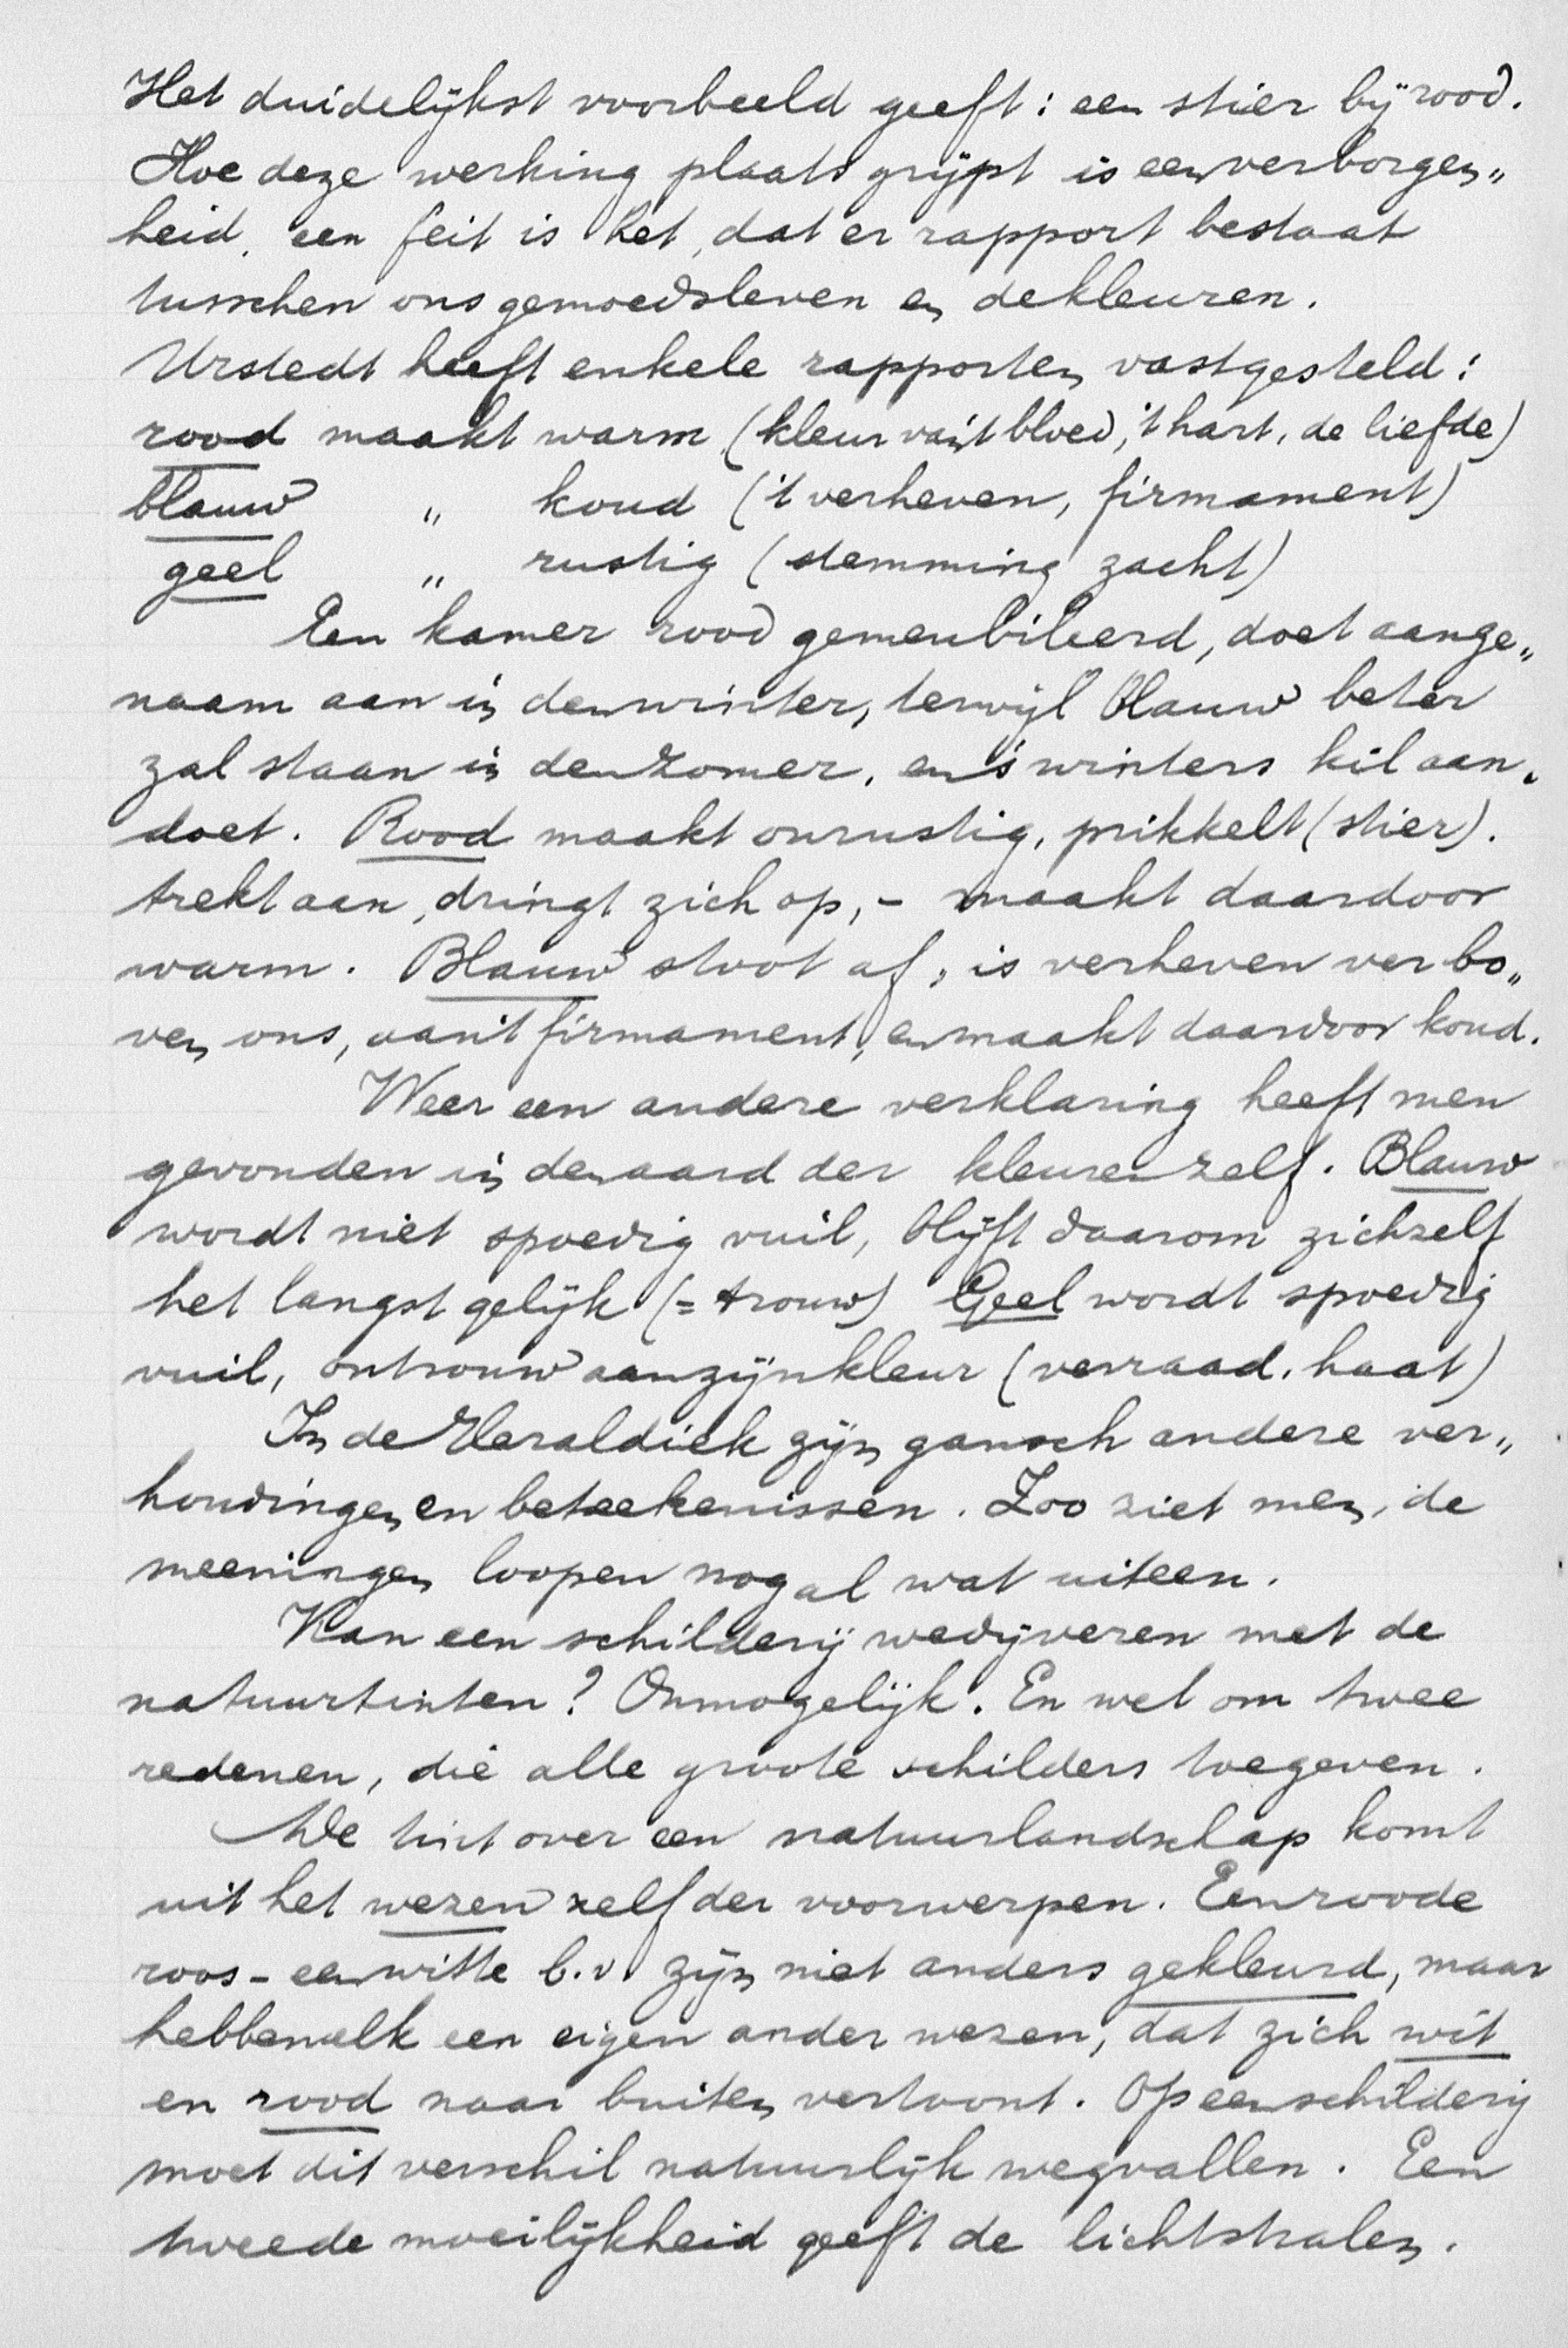 Het duidelijkst voorbeeld geeft: een stier bij rood.
Hoe deze werking plaats grijpt is een verborgen„
heid, een feit is het, dat er rapport bestaat
tusschen ons gemoedsleven en de kleuren.
Urstedt heeft enkele rapporten vastgesteld:
rood maakt warm (kleur van 't bloed, 't hart, de liefde)
blauw „ koud ('t verheven, firmament)
geel „ rustig (stemming zacht)
Een kamer rood gemeubileerd, doet aange„
naam aan in den winter, terwijl blauw beter
zal staan in den zomer, en 's winters kil aan„
doet. Rood maakt onrustig, prikkelt (stier).
trekt aan, dringt zich op, - maakt daardoor
warm. Blauw stoot af, is verheven ver bo„
ven ons, aan 't firmament, en maakt daardoor koud.
Weer een andere verklaring heeft men
gevonden in den aard der kleuren zelf. Blauw
wordt niet spoedig vuil, blijft daarom zichzelf
het langst gelijk (= trouw) Geel wordt spoedig
vuil, ontrouw aan zijn kleur (verraad, haat)
In de Heraldiek zijn gansch andere ver„
houdingen en beteekenissen. Zoo ziet men, de
meeningen loopen nog al wat uiteen.
Kan een schilderij wedijveren met de
natuurtinten? Onmogelijk. En wel om twee
redenen, die alle groote schilders toegeven.
De tint over een natuurlandschap komt
uit het wezen zelf der voorwerpen. Een roode
roos - een witte b.v. zijn niet anders gekleurd, maar
hebben elk een eigen ander wezen, dat zich wit
en rood naar buiten vertoont. Op een schilderij
moet dit verschil natuurlijk wegvallen. Een
tweede moeilijkheid geeft de lichtstralen.